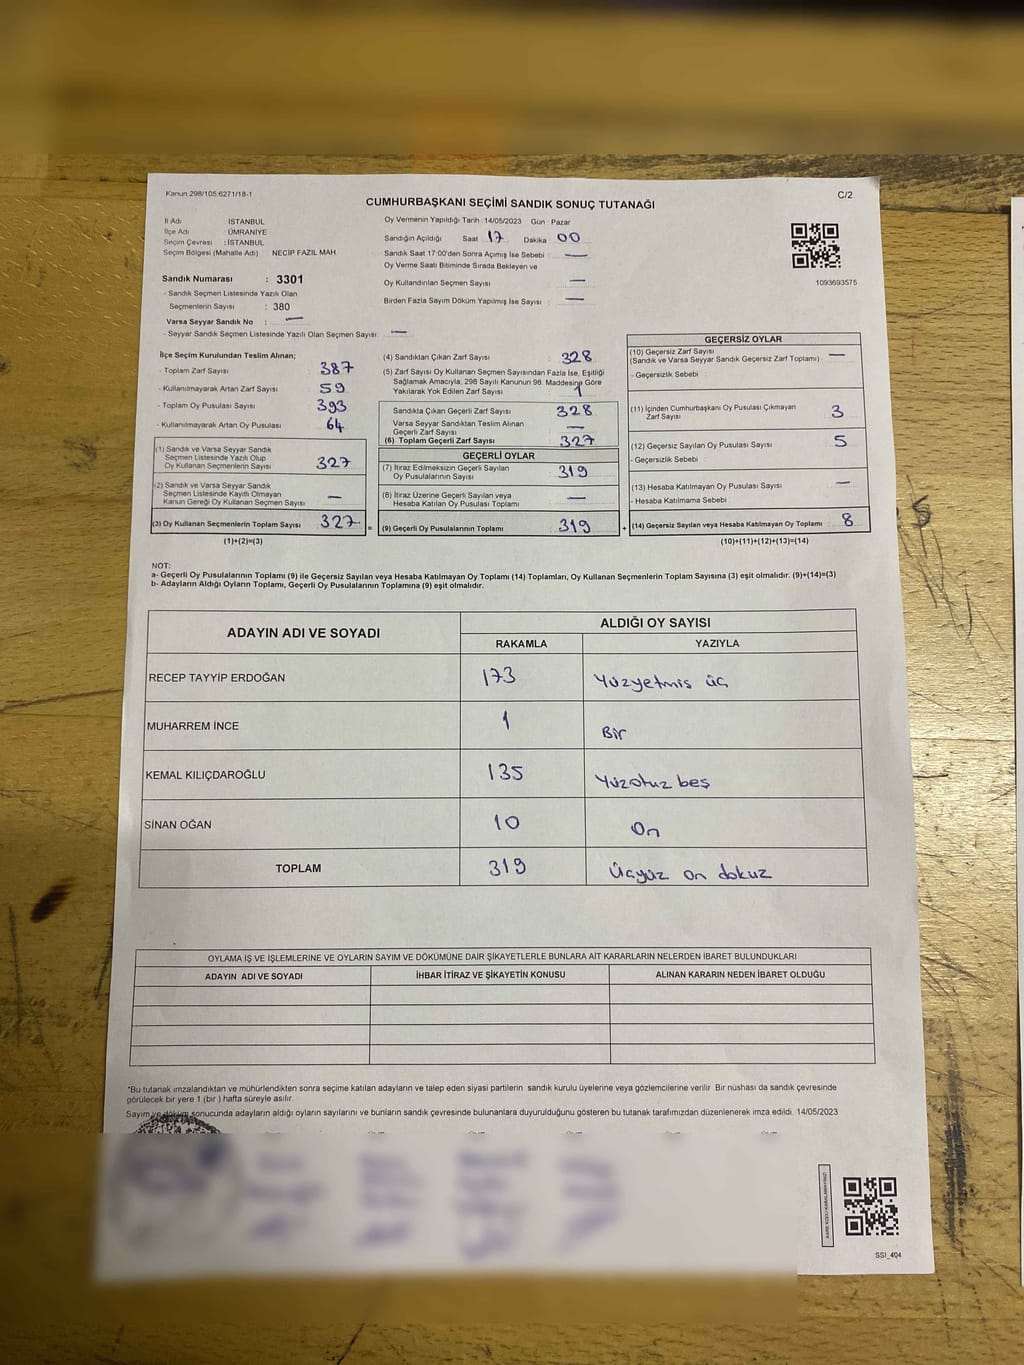 Kanun 298/105.6271/18-1
C/2
CUMHURBAŞKANI SEÇİMİ SANDIK SONUÇ TUTANAĞI
İl Adı : İSTANBUL
İlçe Adı : ÜMRANİYE
Seçim Çevresi : İSTANBUL
Seçim Bölgesi (Mahalle Adı) : NECİP FAZIL MAH
Sandık Numarası : 3301
- Sandık Seçmen Listesinde Yazılı Olan
Seçmenlerin Sayısı : 380
Varsa Seyyar Sandık No : —
- Seyyar Sandık Seçmen Listesinde Yazılı Olan Seçmen Sayısı: —
Oy Vermenin Yapıldığı Tarih :14/05/2023 Gün : Pazar
Sandığın Açıldığı Saat 17 Dakika 00
Sandık Saat 17:00'den Sonra Açımış İse Sebebi —
Oy Verme Saati Bitiminde Sırada Bekleyen ve
Oy Kullandırılan Seçmen Sayısı —
Birden Fazla Sayım Döküm Yapılmış İse Sayısı : —
1093693575
İlçe Seçim Kurulundan Teslim Alınan;
- Toplam Zarf Sayısı 387
- Kullanılmayarak Artan Zarf Sayısı 59
- Toplam Oy Pusulası Sayısı 393
- Kullanılmayarak Artan Oy Pusulası 64
(1) Sandık ve Varsa Seyyar Sandık
Seçmen Listesinde Yazılı Olup
Oy Kullanan Seçmenlerin Sayısı 327
(2) Sandık ve Varsa Seyyar Sandık
Seçmen Listesinde Kayıtlı Olmayan
Kanun Gereği Oy Kullanan Seçmen Sayısı —
(3) Oy Kullanan Seçmenlerin Toplam Sayısı 327 =
(1)+(2)=(3)
(4) Sandıktan Çıkan Zarf Sayısı : 328
(5) Zarf Sayısı Oy Kullanan Seçmen Sayısından Fazla İse, Eşitliği
Sağlamak Amacıyla, 298 Sayılı Kanunun 98. Maddesine Göre
Yakılarak Yok Edilen Zarf Sayısı 1
Sandıkta Çıkan Geçerli Zarf Sayısı : 328
Varsa Seyyar Sandıktan Teslim Alınan
Geçerli Zarf Sayısı —
(6) Toplam Geçerli Zarf Sayısı 327
GEÇERLİ OYLAR
(7) İtiraz Edilmeksizin Geçerli Sayılan
Oy Pusulalarının Sayısı 319
(8) İtiraz Üzerine Geçerli Sayılan veya
Hesaba Katılan Oy Pusulası Toplamı —
(9) Geçerli Oy Pusulalarının Toplamı : 319 +
GEÇERSİZ OYLAR
(10) Geçersiz Zarf Sayısı
(Sandık ve Varsa Seyyar Sandık Geçersiz Zarf Toplamı) —
- Geçersizlik Sebebi :
(11) İçinden Cumhurbaşkanı Oy Pusulası Çıkmayan
Zarf Sayısı 3
(12) Geçersiz Sayılan Oy Pusulası Sayısı 5
- Geçersizlik Sebebi :
(13) Hesaba Katılmayan Oy Pusulası Sayısı : —
- Hesaba Katılmama Sebebi
(14) Geçersiz Sayılan veya Hesaba Katılmayan Oy Toplamı : 8
(10)+(11)+(12)+(13)=(14)
NOT:
a- Geçerli Oy Pusulalarının Toplamı (9) ile Geçersiz Sayılan veya Hesaba Katılmayan Oy Toplamı (14) Toplamları, Oy Kullanan Seçmenlerin Toplam Sayısına (3) eşit olmalıdır. (9)+(14)=(3)
b- Adayların Aldığı Oyların Toplamı, Geçerli Oy Pusulalarının Toplamına (9) eşit olmalıdır.
ADAYIN ADI VE SOYADI
ALDIĞI OY SAYISI
RAKAMLA YAZIYLA
RECEP TAYYİP ERDOĞAN 173 Yüzyetmis üç
MUHARREM İNCE 1 Bir
KEMAL KILIÇDAROĞLU 135 Yüzotuz beş
SİNAN OĞAN 10 On
TOPLAM 319 Üçyüz on dokuz
OYLAMA İŞ VE İŞLEMLERİNE VE OYLARIN SAYIM VE DÖKÜMÜNE DAİR ŞİKAYETLERLE BUNLARA AİT KARARLARIN NELERDEN İBARET BULUNDUKLARI
ADAYIN ADI VE SOYADI İHBAR İTİRAZ VE ŞİKAYETİN KONUSU ALINAN KARARIN NEDEN İBARET OLDUĞU
*Bu tutanak imzalandıktan ve mühürlendikten sonra seçime katılan adayların ve talep eden siyasi partilerin sandık kurulu üyelerine veya gözlemcilerine verilir. Bir nüshası da sandık çevresinde
görülecek bir yere 1 (bir ) hafta süreyle asılır.
Sayım ve döküm sonucunda adayların aldığı oyların sayılarını ve bunların sandık çevresinde bulunanlara duyurulduğunu gösteren bu tutanak tarafımızdan düzenlenerek imza edildi. 14/05/2023
SSI_404